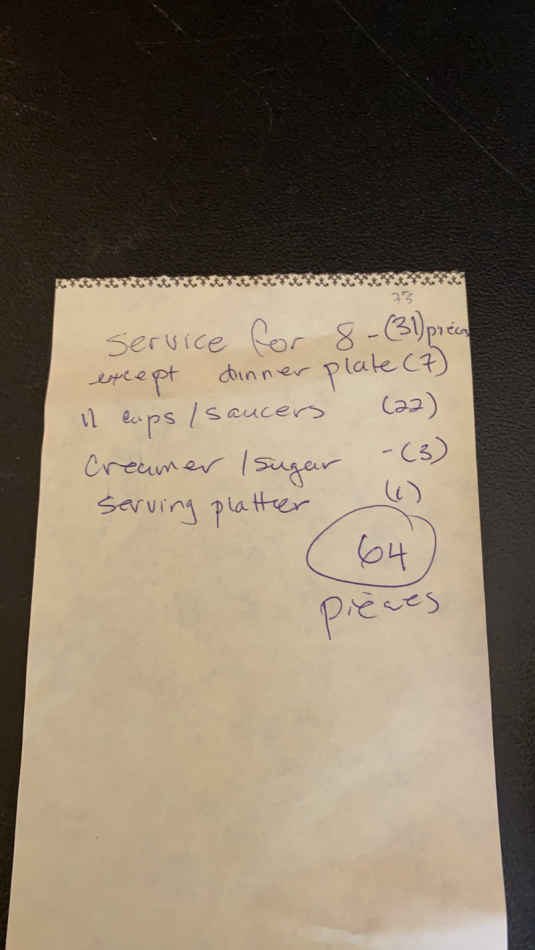 33
Service for 8 - (31) pieces
except dinner plate (7)
11 cups / saucers (22)
Creamer / sugar - (3)
Serving platter (1)
64
pieces